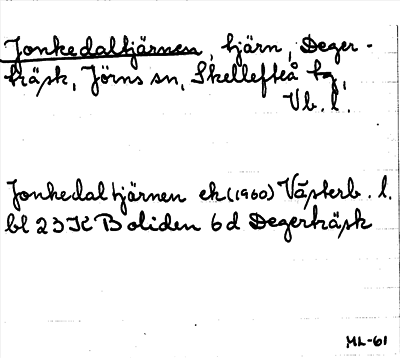 Jonkedaltjärnen, tjärn, Deger-
träsk, Jörns sn, Skellefteå tg,
Vb. l.
Jonkedaltjärnen ek (1960) Västerb. l.
bl 23K Boliden 6d Degerträsk
ML-61